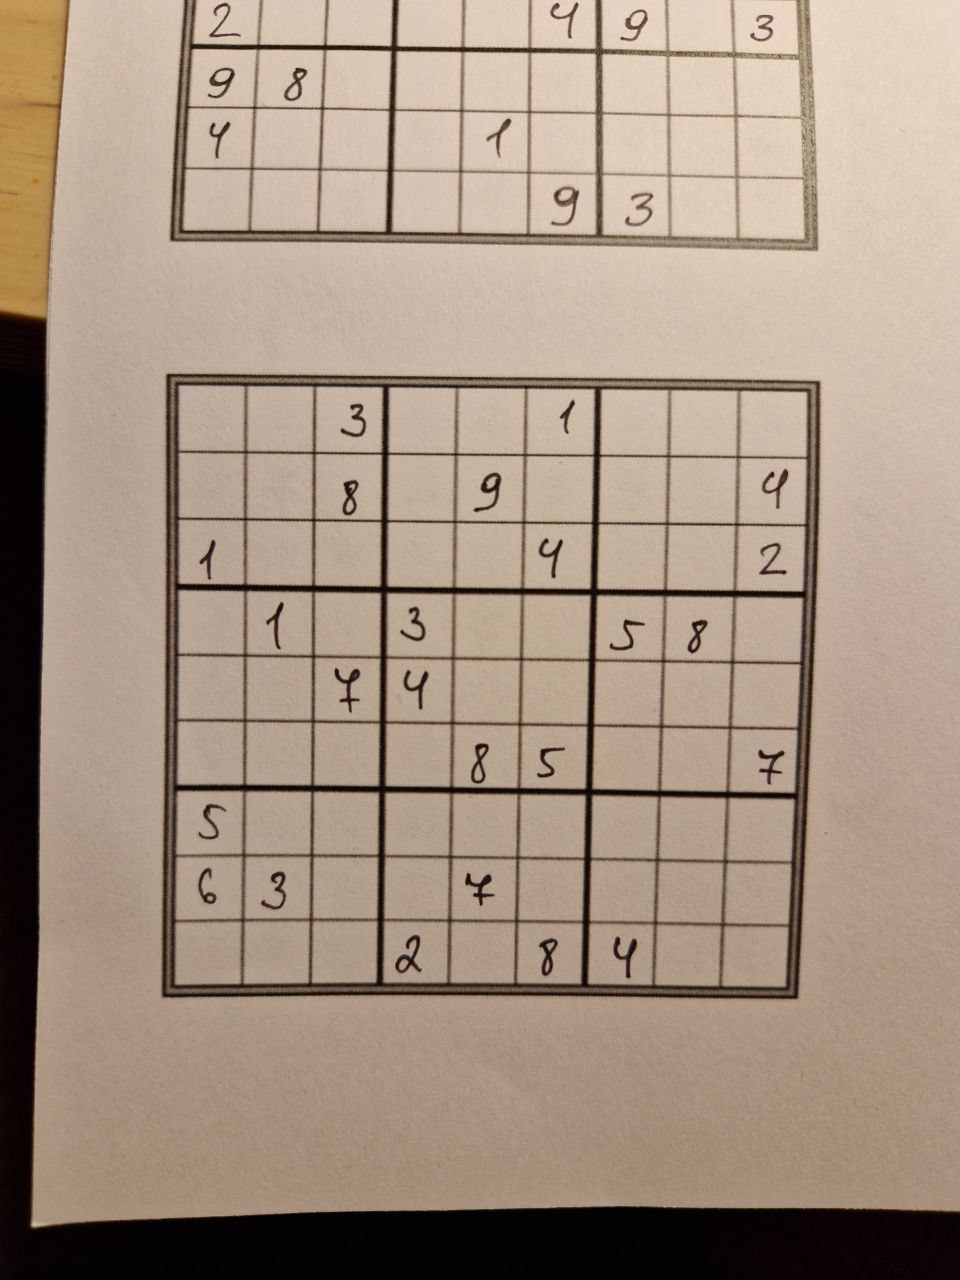 2 4 9 3
9 8
4 1
9 3
3 1
8 9 4
1 4 2
1 3 5 8
7 4
8 5 7
5
6 3 7
2 8 4